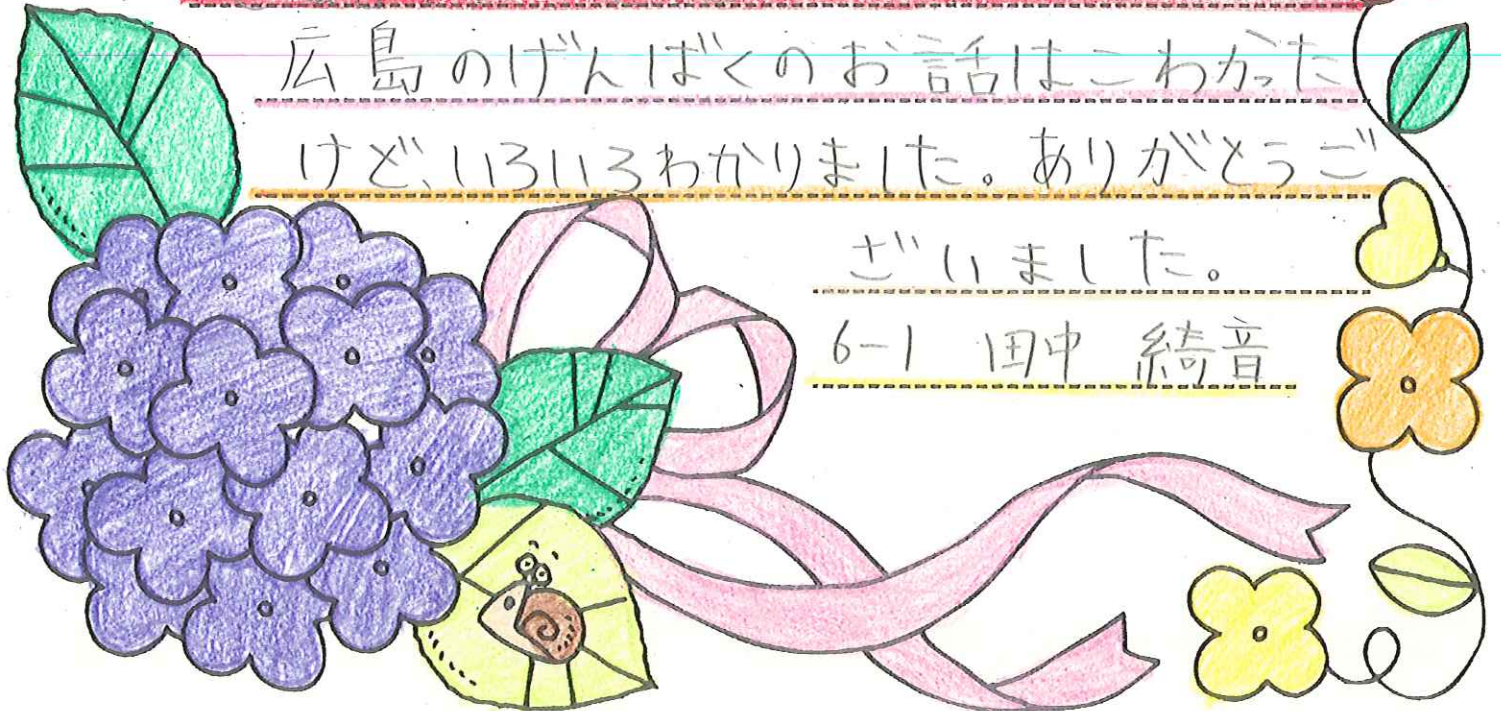 広島のげんばくのお話はこわかった
けど、いろいろわかりました。ありがとうご
ざいました。
6-1 田中 綺音